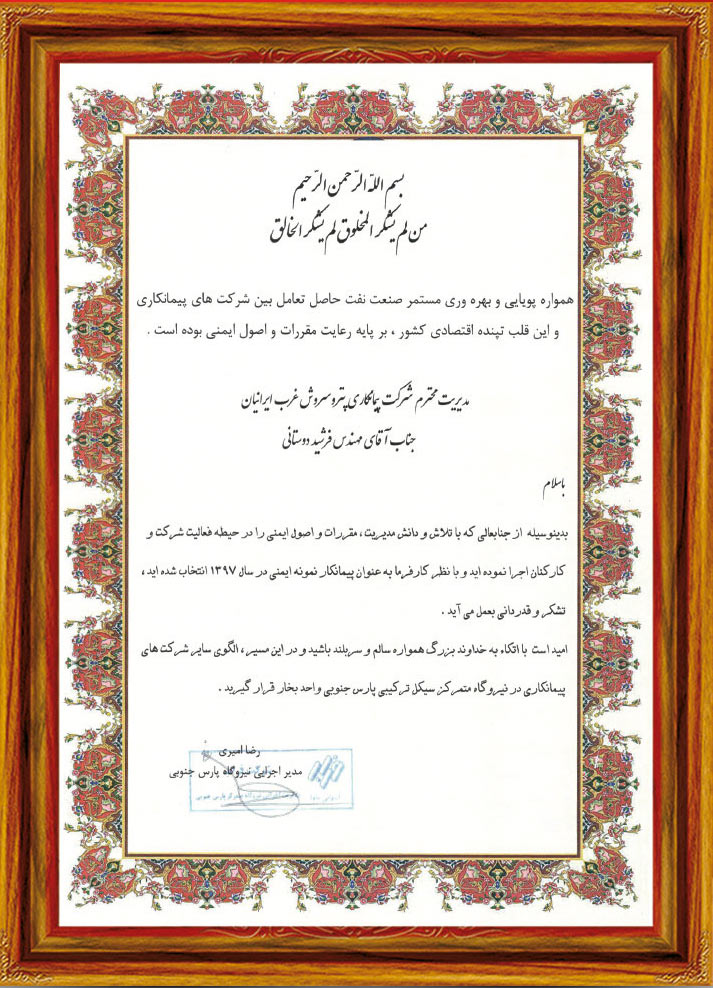 بسم اللّه الرّحمن الرّحیم
من لم یشکر المخلوق لم یشکر الخالق
همواره پویایی و بهره وری مستمر صنعت نفت حاصل تعامل بین شرکت های پیمانکاری
و این قلب تپنده اقتصادی کشور ، بر پایه رعایت مقررات و اصول ایمنی بوده است .
مدیریت محترم شرکت پیمانکاری پترو سروش غرب ایرانیان
جناب آقای مهندس فرشید دوستانی
باسلام
بدینوسیله از جنابعالی که با تلاش و دانش مدیریت ، مقررات و اصول ایمنی را در حیطه فعالیت شرکت و
کارکنان اجرا نموده اید و با نظر کارفرما به عنوان پیمانکار نمونه ایمنی در سال ۱۳۹۷ انتخاب شده اید ،
تشکر و قدردانی بعمل می آید .
امید است با اتکاء به خداوند بزرگ همواره سالم و سربلند باشید و در این مسیر ، الگوی سایر شرکت های
پیمانکاری در نیروگاه متمرکز سیکل ترکیبی پارس جنوبی واحد بخار قرار گیرید .
رضا امیری
مدیر اجرایی نیروگاه پارس جنوبی